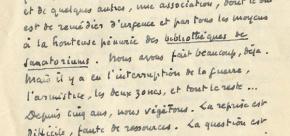 et de quelques autres, une association, dont le but
est de remédier d'urgence et par tous les moyens
à la honteuse pénurie des bibliothèques de
sanatoriums. Nous avons fait beaucoup, déjà.
Mais il y a eu l'interruption de la guerre,
l'armistice, les deux zones, et tout le reste...
Depuis cinq ans, nous végétons. La reprise est
difficile, faute de ressources. La question est